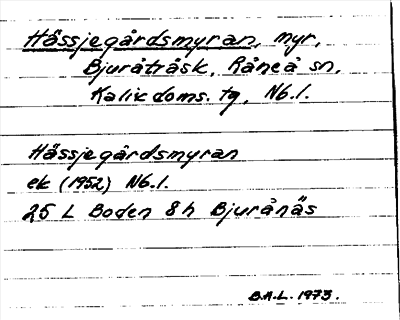 Hässjegårdsmyran, myr,
Bjuråträsk, Råneå sn,
Kalix doms. tg, Nb. l.
Hässjegårdsmyran
ek (1952) Nb. l.
25 L Boden 8h Bjurånäs
B.H.L. 1973.